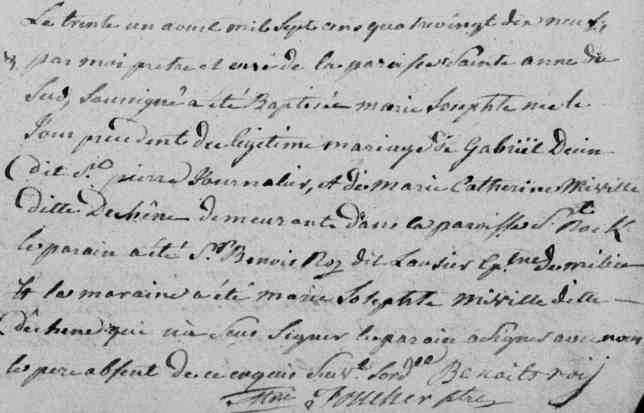 Le trente un aoust mil Sept cens quatrevingt dix neuf,
par moi pretre et curé de la paroisse Sainte anne du
Sud, Soussigné a été Baptisée marie Josephte neé le
Jour precedent du legitime mariage de Gabriël Deuin
dit St. pierre Journalier, et de marie Catherine Miville
ditte Dechêne demeurants dans la paroisse St Rock
le parain a été Sr. Benoit Roy dit Lausier Cptne de milice
Et la maraine a été marie Josephte miville ditte
dechene qui n'a Seus Signer le parain a Signes avec nous
le pere absent de ce enquis Suivt. lord.ce Benoit roij
Foucher ptre